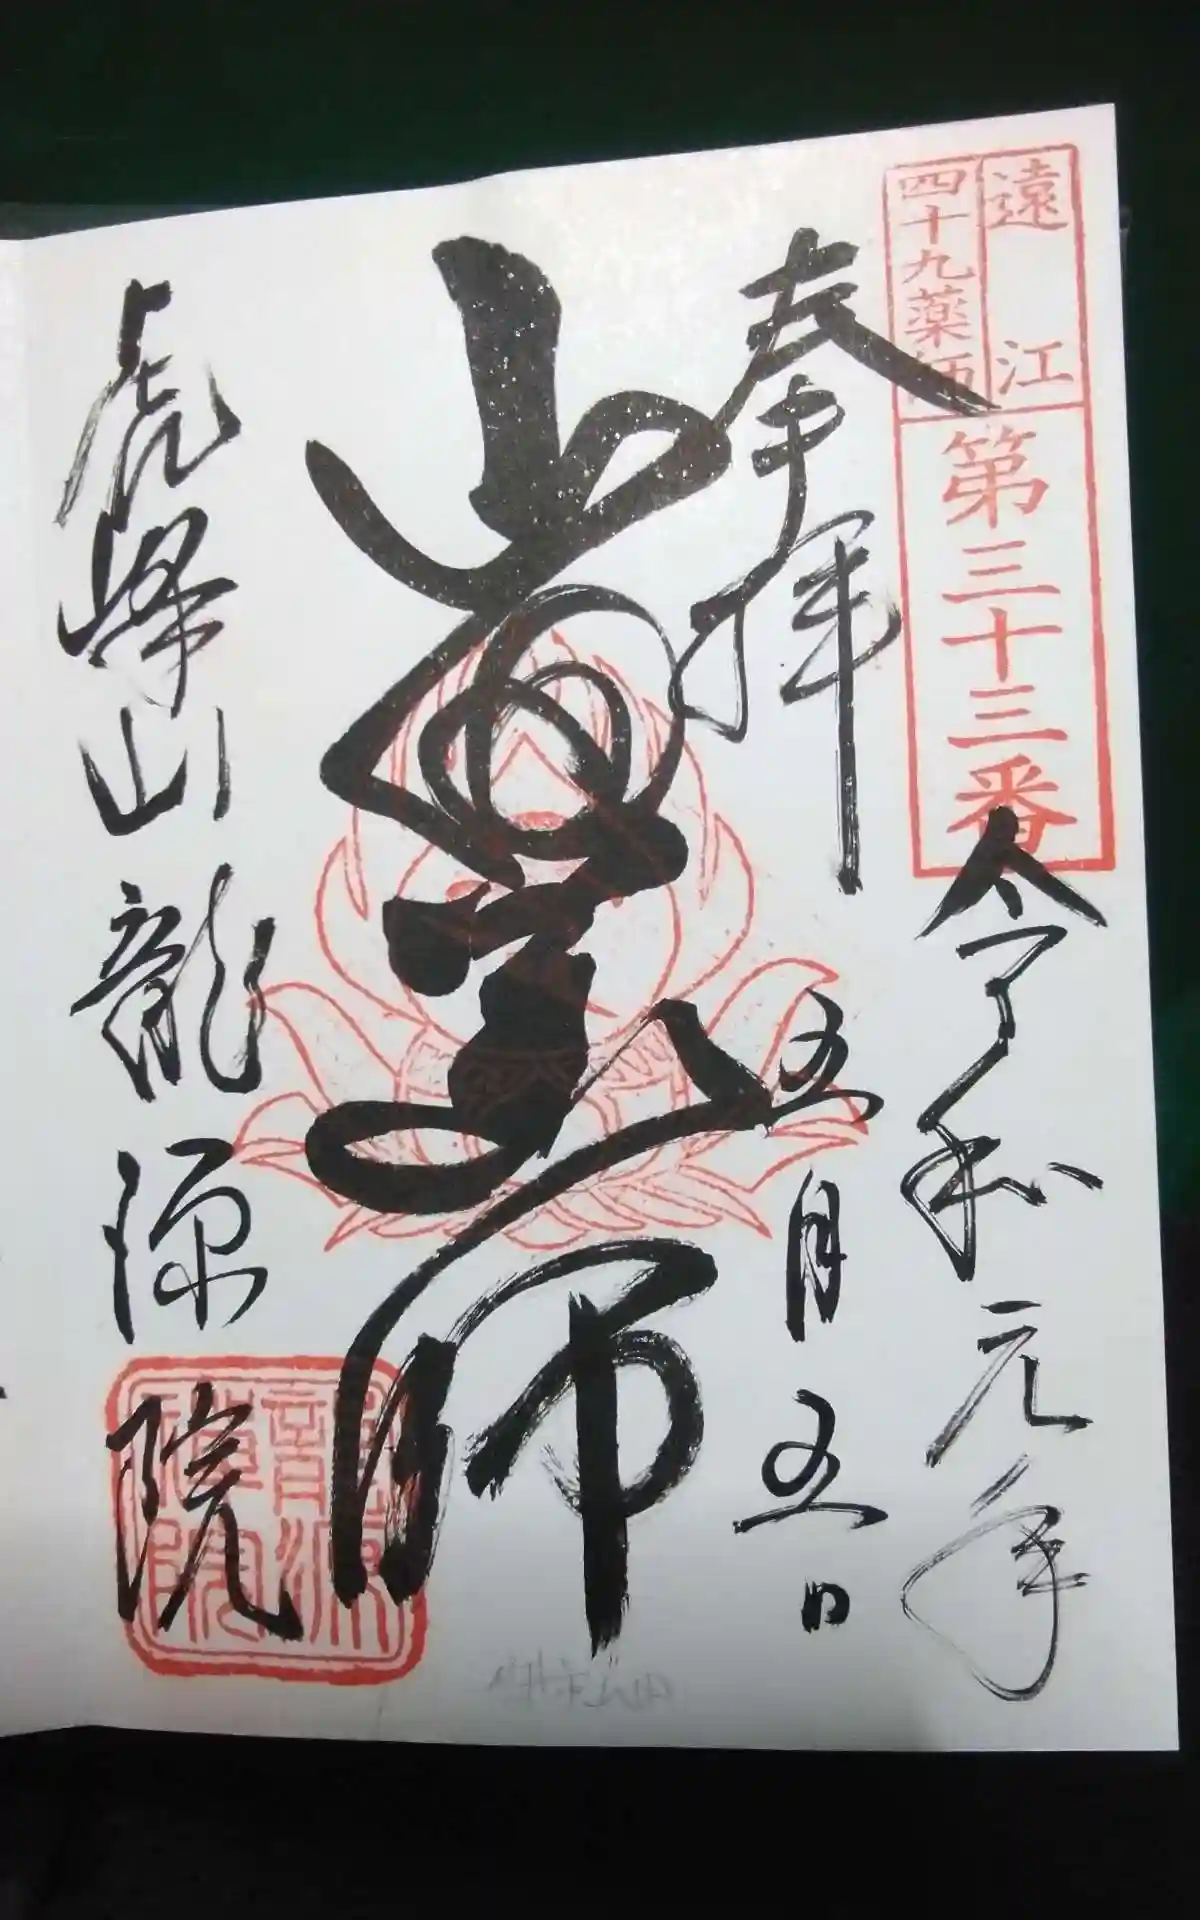 遠江
四十九薬師
第三十三番
令和元年
五月五日
奉拝
薬師
虎峰山龍源院
龍源
禅院